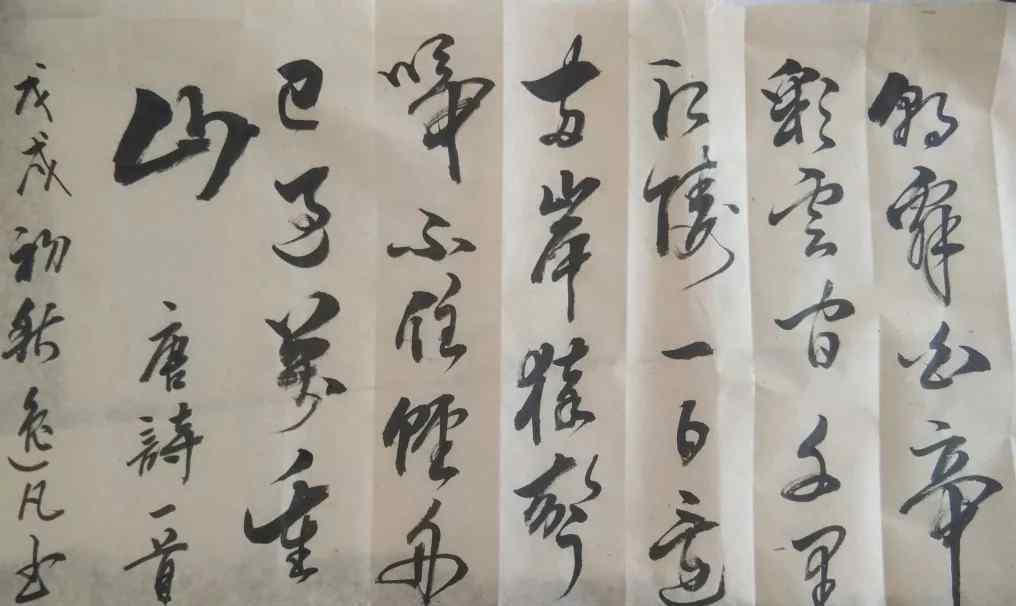 朝辞白帝
彩雲间千里
江陵一日還
两岸猿聲
啼不住軽舟
已过萬重
山 唐詩一首
戊戌初秋逸凡书